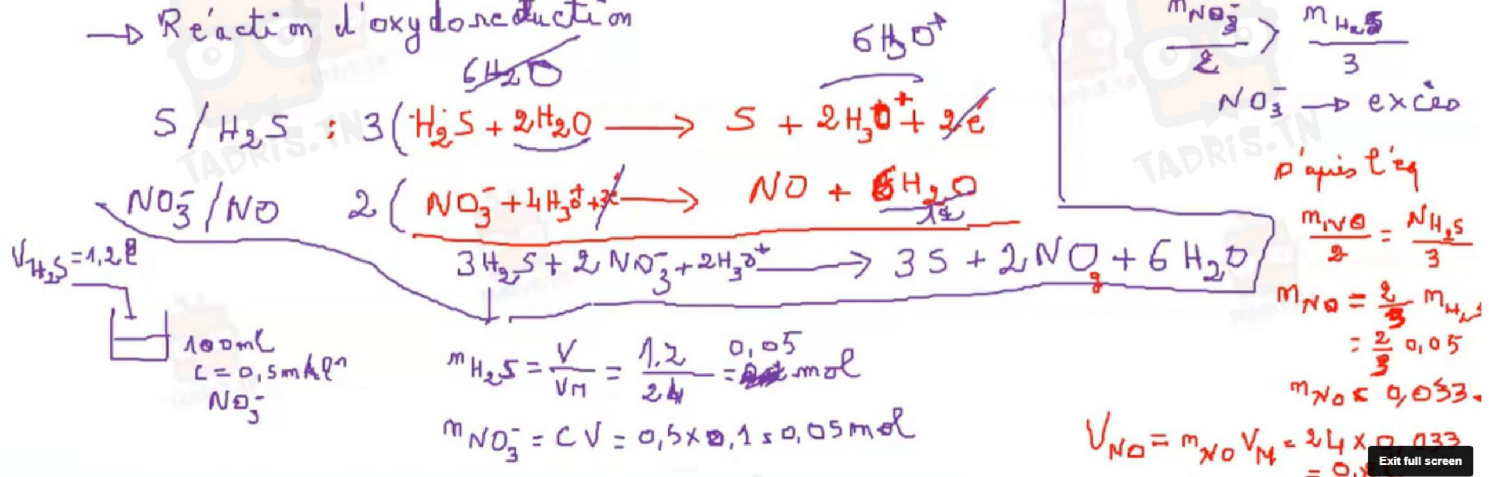 → Réaction d'oxydoreduction
6H2O
6H3O+
S/H2S : 3(H2S + 2H2O → S + 2H3O+ + 2e-
NO3-/NO 2( NO3- + 4H3O+ + 3e- → NO + 6H2O
12
3H2S + 2NO3- + 2H3O+ → 3S + 2NOg + 6H2O
VH2S = 1,2l
100ml
C = 0,5mol l-1
NO3-
nH2S = V/VM = 1.2/24 = 0,05 mol
nNO3- = CV = 0,5 x 0,1 = 0,05 mol
nNO3-/2 > nH2S/3
NO3- → excès
D'après l'eq
nNO/2 = NH2S/3
nNO = 2/3 nH2S
= 2/3 0,05
nNO = 0,033
VNO = nNO VM = 24 x 0,033
= 0,
Exit full screen
TADRIS.TN
TADRIS.TN